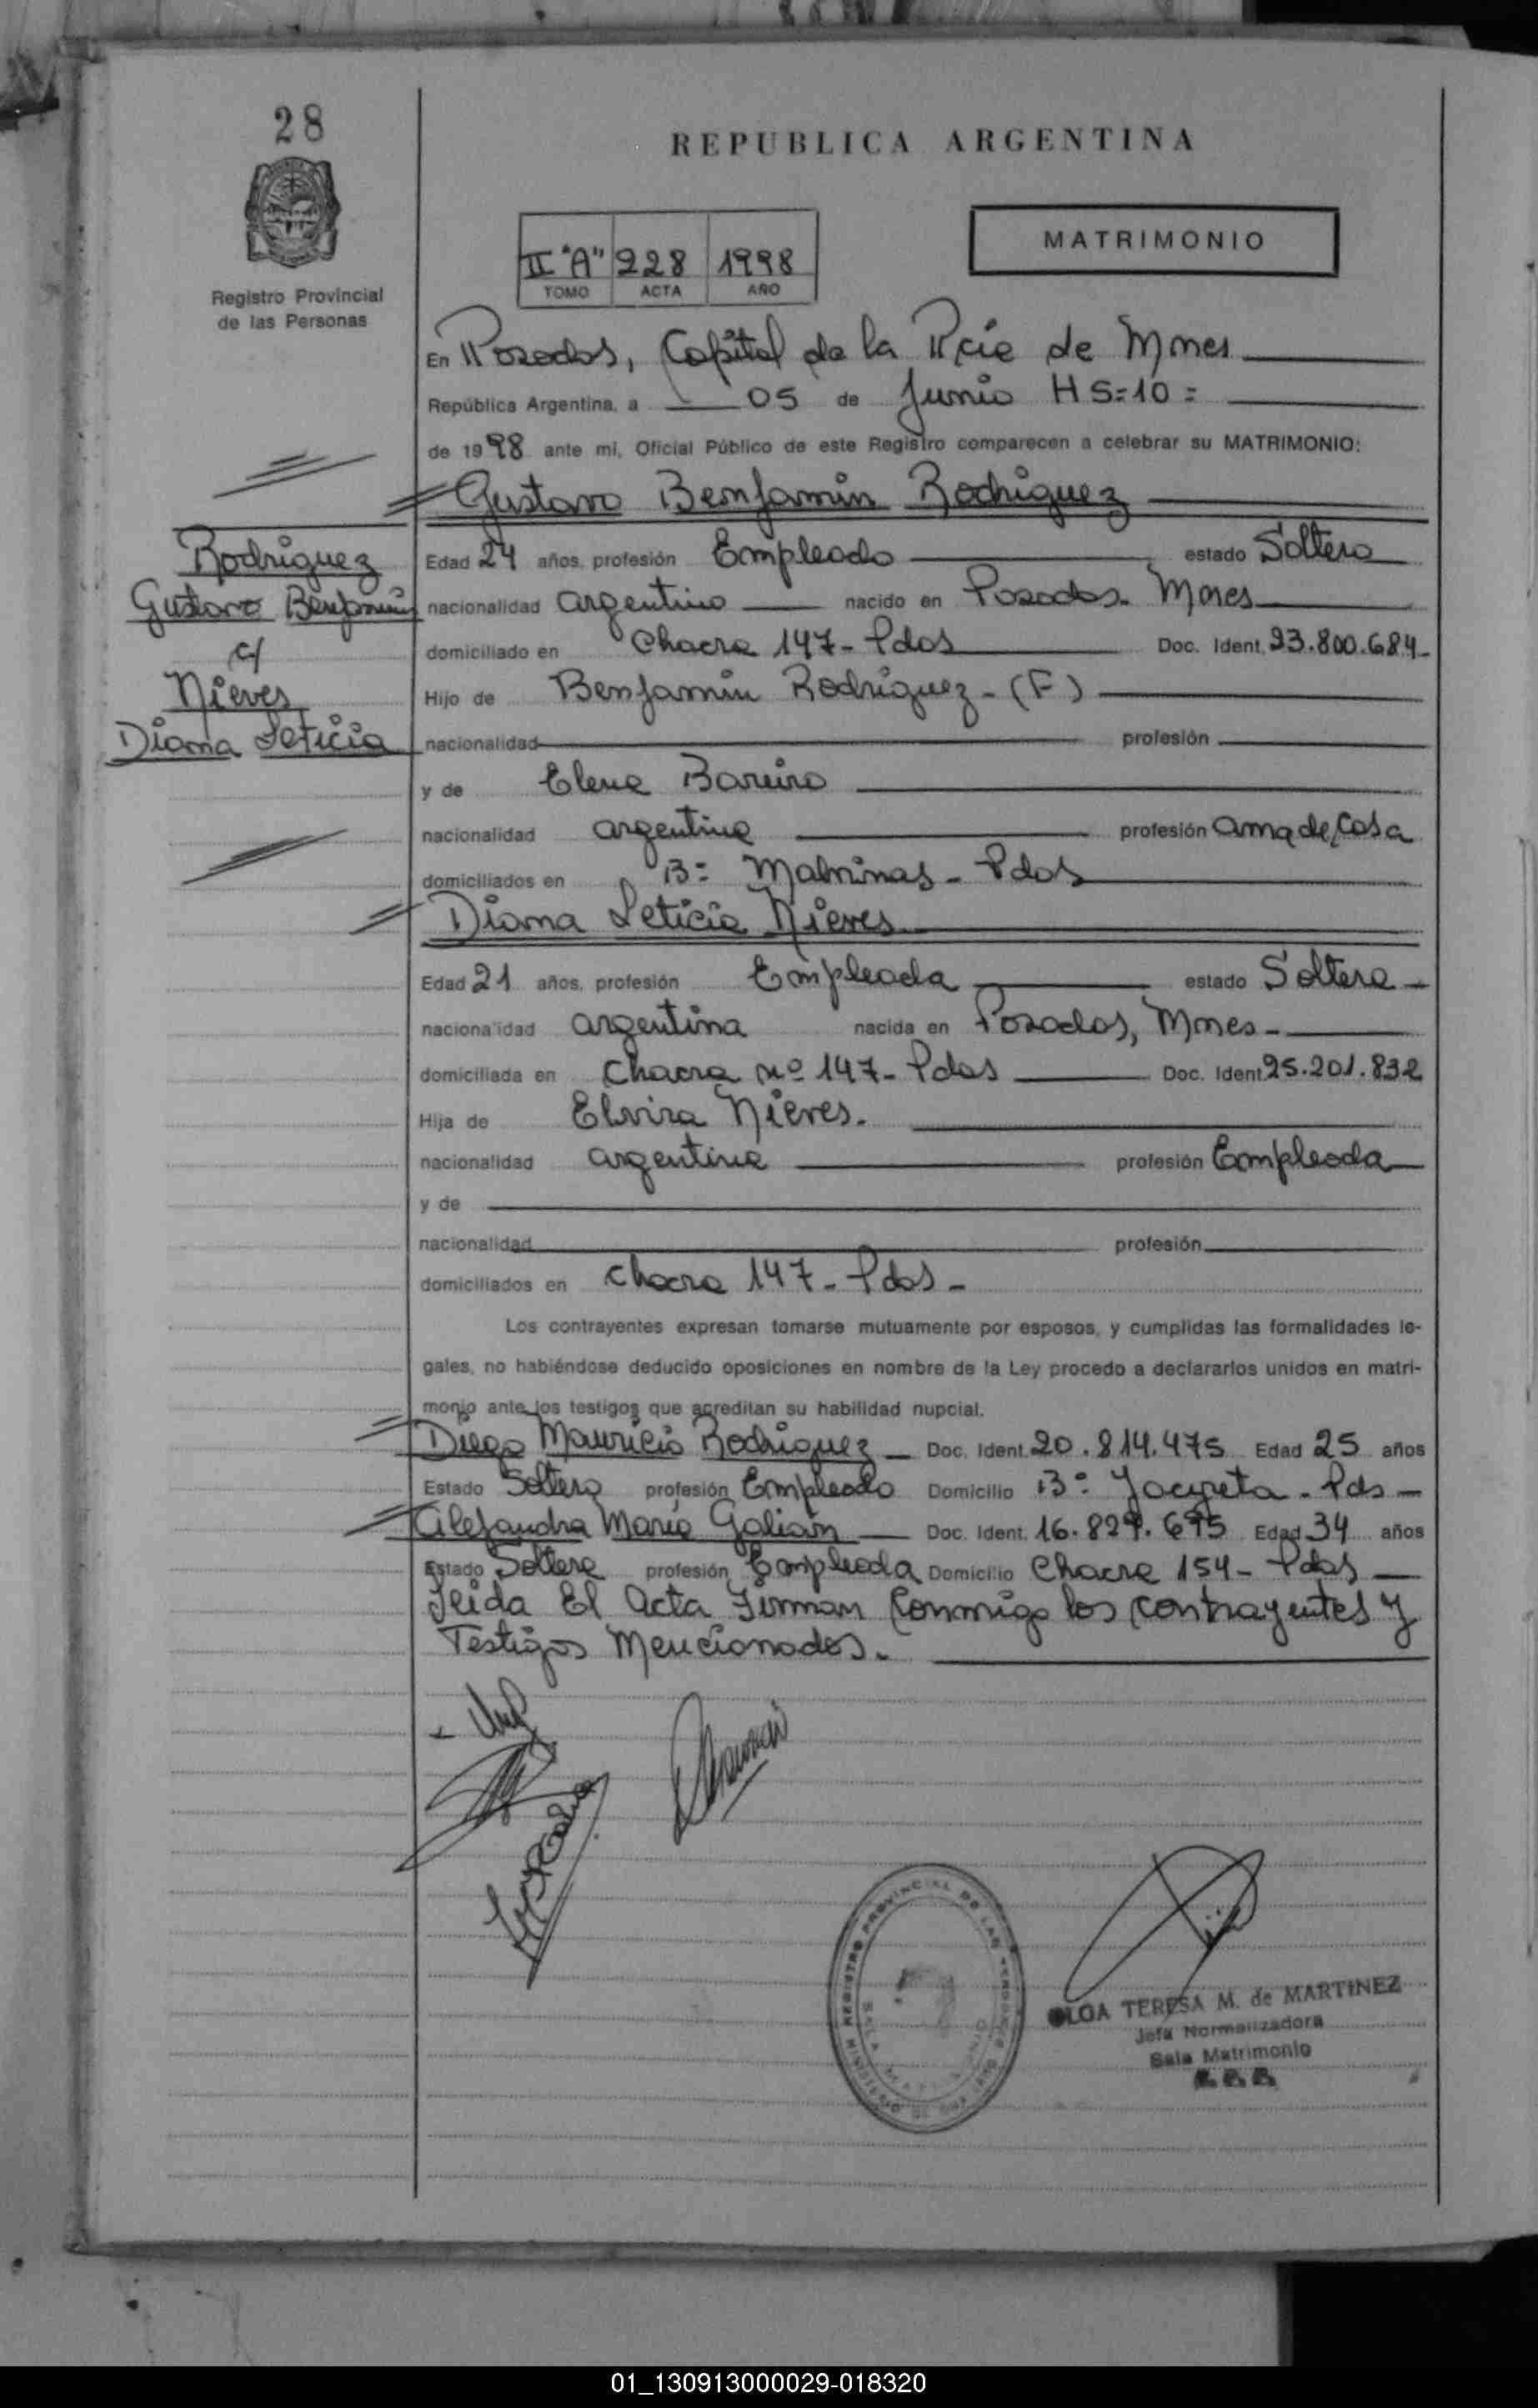 28
REPUBLICA ARGENTINA
MATRIMONIO
II "A" 228 1998
TOMO ACTA AÑO
Registro Provincial
de las Personas
En Posadas, Capital de la Pcia de Mnes
República Argentina, a 05 de Junio HS=10=
de 1998 ante mi, Oficial Público de este Registro comparecen a celebrar su MATRIMONIO:
Gustavo Benjamin Rodriguez
Rodriguez
Gustavo Benjamin
c/
Nieves
Diana Leticia
Edad 24 años, profesión Empleado estado Soltero
nacionalidad argentino nacido en Posadas. Mnes
domiciliado en Chacra 147- Pdas Doc. Ident. 23.800.684-
Hijo de Benjamin Rodriguez - (F)
nacionalidad profesión
y de Elena Bareiro
nacionalidad argentina profesión ama de casa
domiciliados en B= Malvinas - Pdas
Diana Leticia Nieves
Edad 21 años, profesión Empleada estado Soltera -
nacionalidad argentina nacida en Posadas, Mnes -
domiciliada en Chacra Nº 147- Pdas Doc. Ident. 25.201.832
Hija de Elvira Nieves.
nacionalidad argentina profesión Empleada
y de
nacionalidad profesión
domiciliados en chacra 147 - Pdas -
Los contrayentes expresan tomarse mutuamente por esposos, y cumplidas las formalidades le-
gales, no habiéndose deducido oposiciones en nombre de la Ley procedo a declararlos unidos en matri-
monio ante los testigos que acreditan su habilidad nupcial.
Diego Mauricio Rodriguez - Doc. Ident. 20.814.475 Edad 25 años
Estado Soltero profesión Empleado Domicilio B= Yacyreta - Pdas -
Alejandra Maria Galian - Doc. Ident. 16.829.695 Edad 34 años
Estado Soltera profesión Empleada Domicilio Chacra 154- Pdas -
Leida El Acta Firman Conmigo los contrayentes y
Testigos Mencionados.
REGISTRO PROVINCIAL DE LAS PERSONAS
OLGA TERESA M. de MARTINEZ
Jefa Normalizadora
Sala Matrimonio
01_130913000029-018320